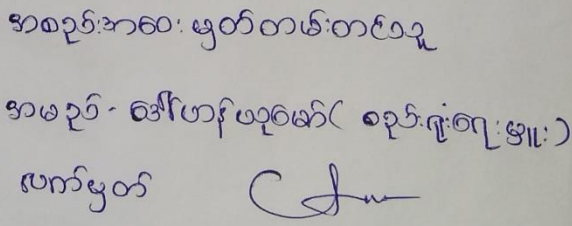 အစည်းအဝေး မှတ်တမ်းတင်သူ
အမည် - ဒေါ်ဟန်ယုမော် ( စည်းရုံးရေးမှူး )
လက်မှတ်